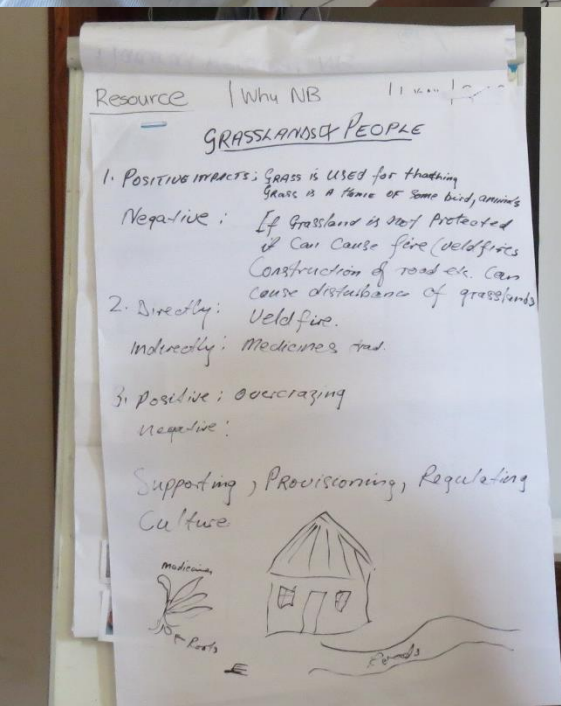 Resource | Why NB
GRASSLANDS & PEOPLE
1. POSITIVE IMPACTS: GRASS is USED for thatching
GRASS is A Home OF Some bird, animals
Negative: If Grassland is not Protected
it Can Cause fire (veldfires
Construction of road etc. Can
cause disturbance of grasslands
2. Directly: Veld fire.
Indirectly: Medicines trad.
3. Positive: overcrazing
negative:
Supporting, Provisioning, Regulating
Culture
Medicines
Roots